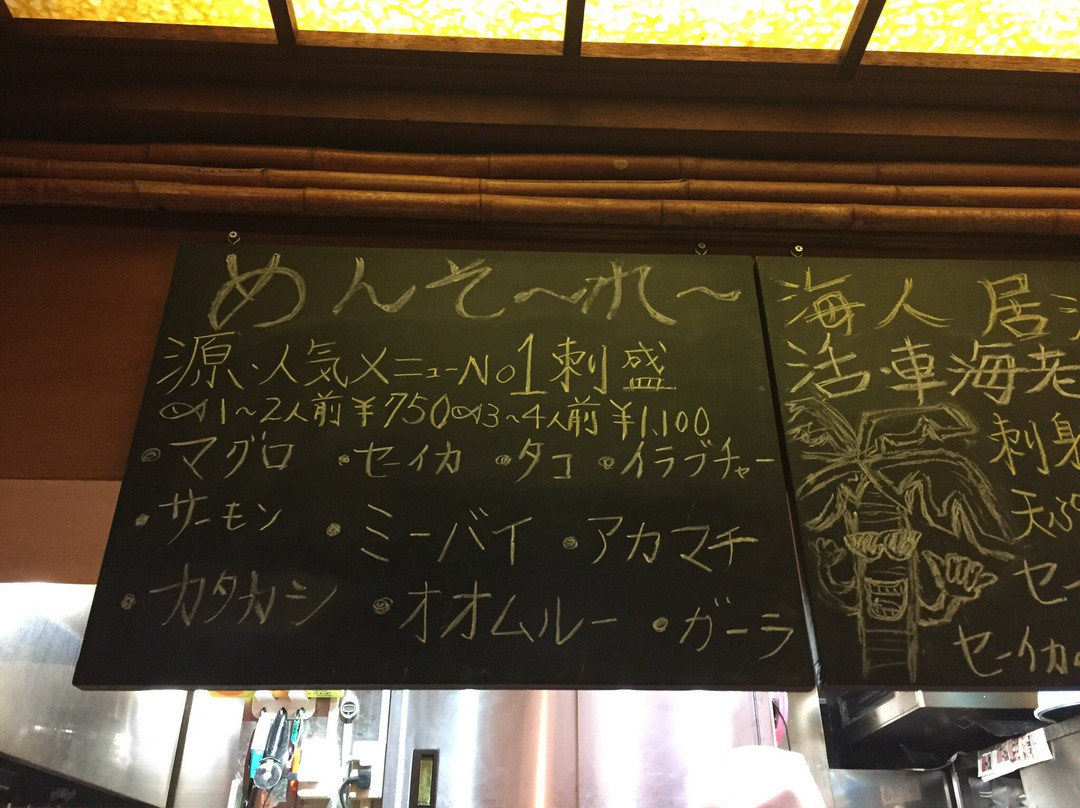 めんそ〜れ〜
源・人気メニューNo1刺盛
1〜2人前¥750 3〜4人前¥1,100
・マグロ ・セーイカ ・タコ ・イラブチャー
・サーモン ・ミーバイ ・アカマチ
・カタカシ ・オオムルー ・ガーラ
海人 居酒
活車海老
刺身
天ぷ
セー
セーイカ